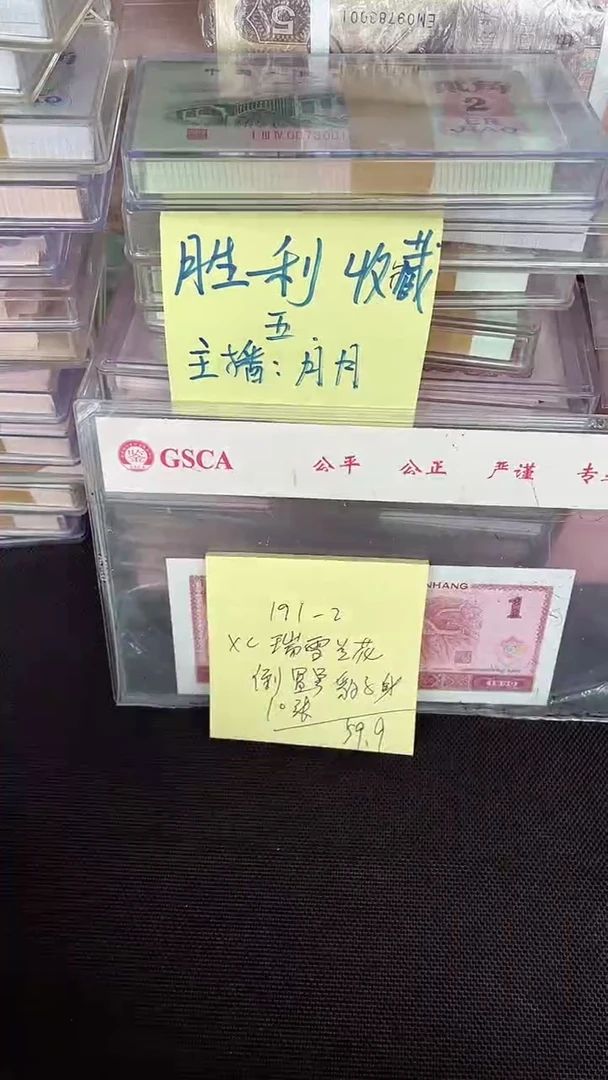 5
EM09783001
贰角
2
ER
JIAO
胜利收藏
五
主播:月月
GSCA 公平 公正 严谨
191-2
XC 瑞雪兰花
倒置号 豹子号
10张
59.9
NHANG
1
1990